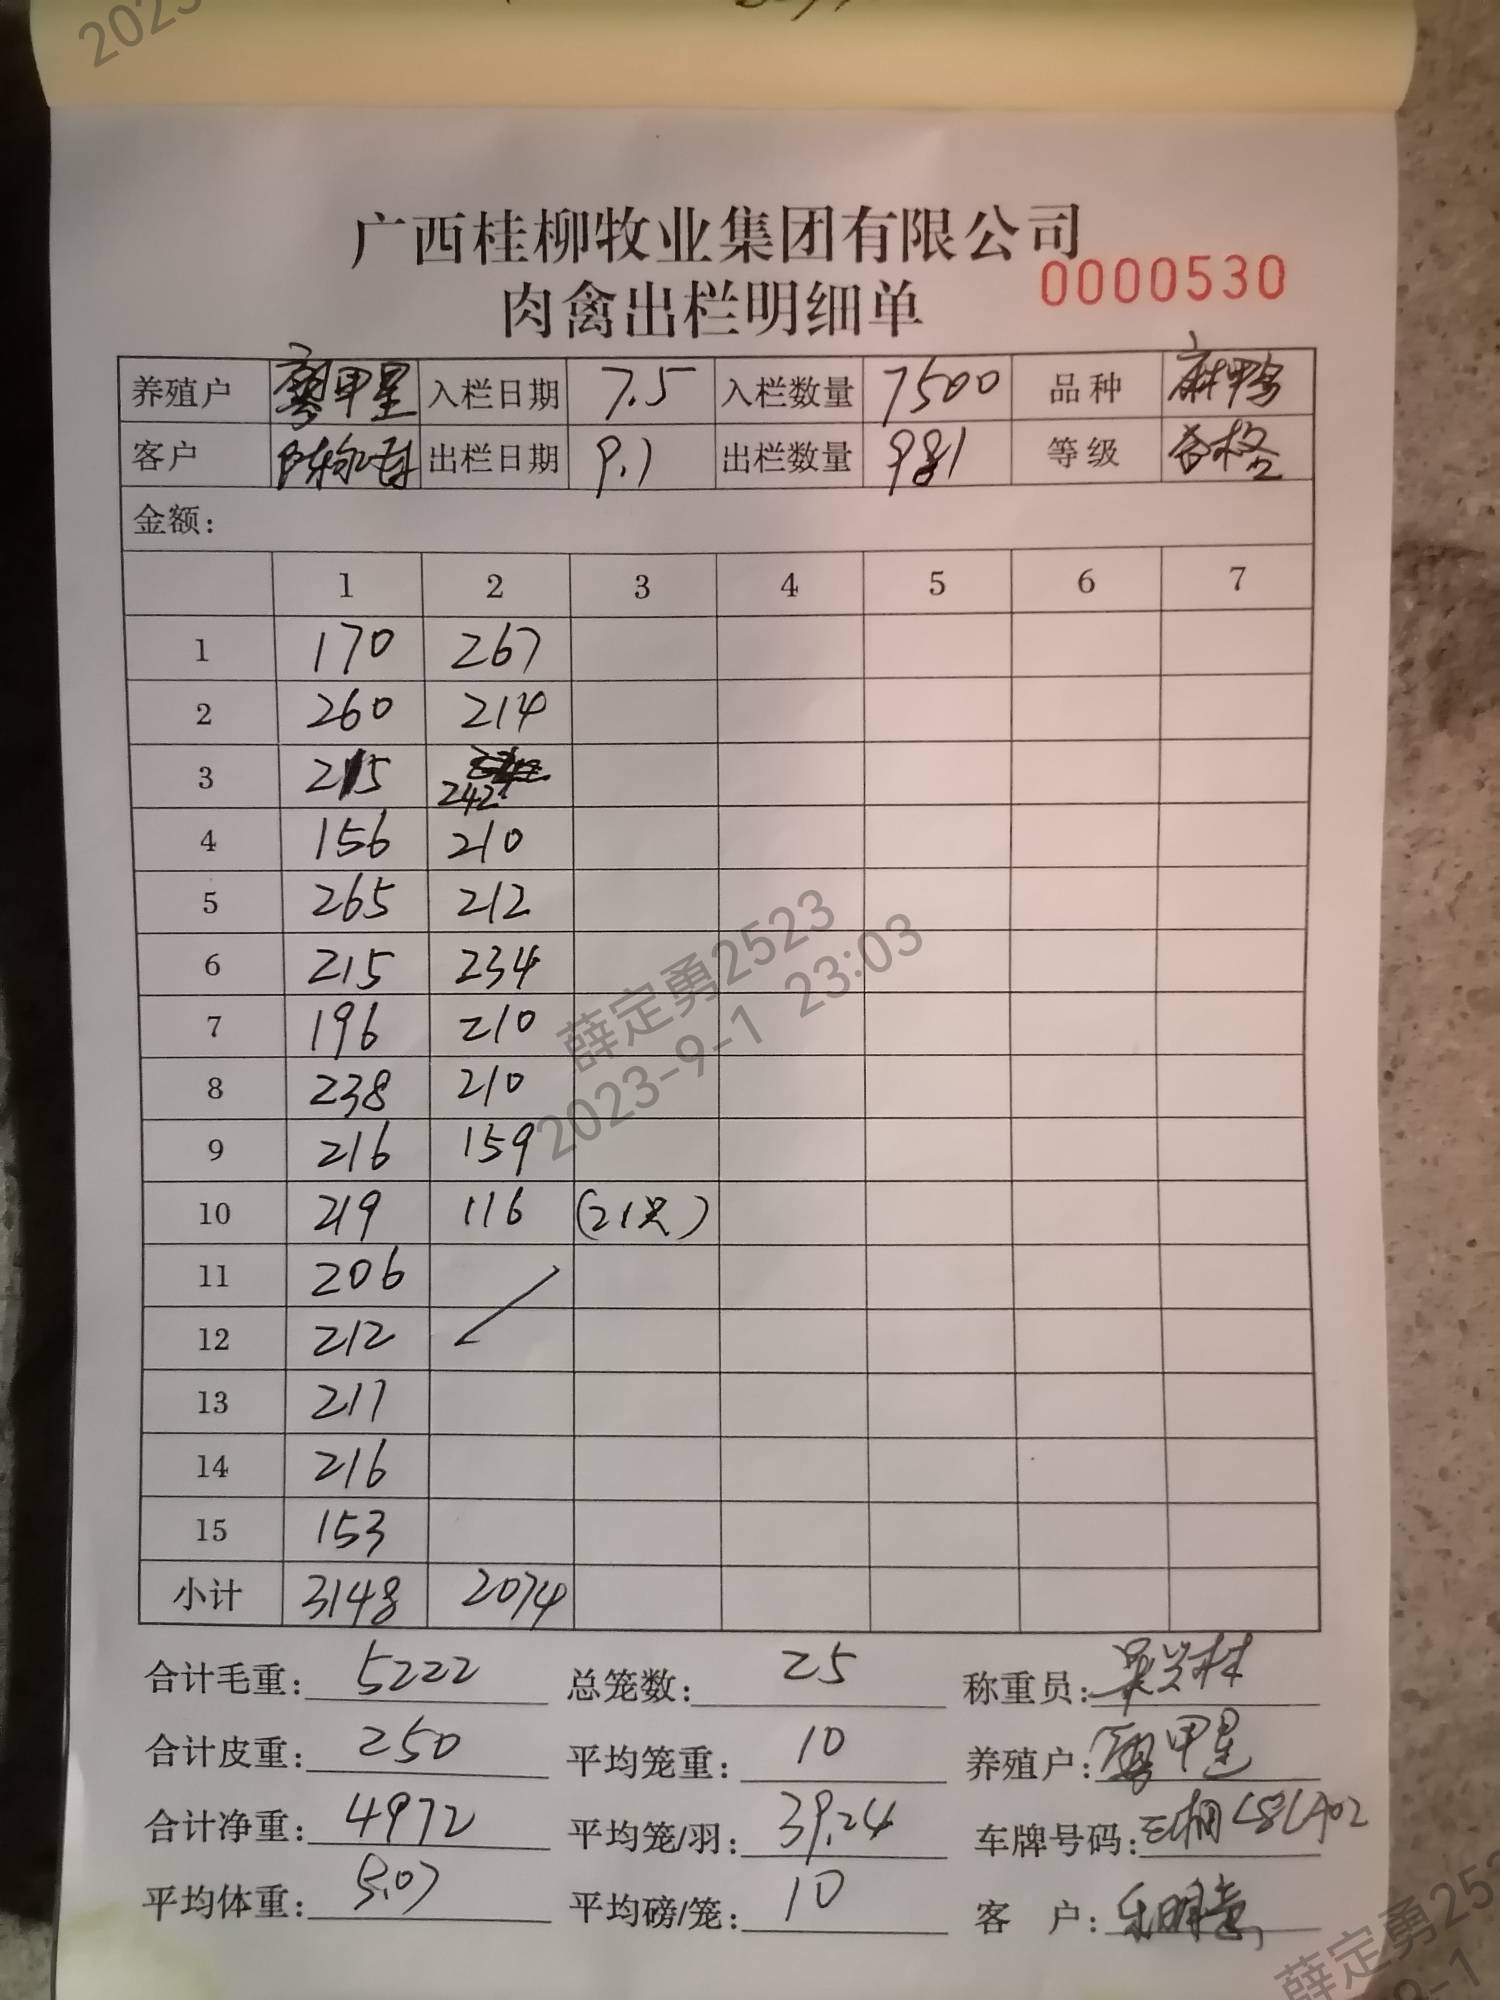 2023
广西桂柳牧业集团有限公司
0000530
肉禽出栏明细单
养殖户 廖甲星 入栏日期 7.5 入栏数量 7500 品种 麻鸭
客户 出栏日期 9.1 出栏数量 981 等级 合格
金额:
1 2 3 4 5 6 7
1 170 267
2 260 214
3 215 242
4 156 210
5 265 212
6 215 234
7 196 210
8 238 210
9 216 159
10 219 116 (21只)
11 206
12 212
13 211
14 216
15 153
小计 3148 2074
合计毛重: 5222 总笼数: 25 称重员:
合计皮重: 250 平均笼重: 10 养殖户: 廖甲星
合计净重: 4972 平均笼/羽: 39.24 车牌号码:
平均体重: 5.07 平均磅/笼: 10 客 户:
薛定勇2523
2023-9-1 23:03
薛定勇252
9-1